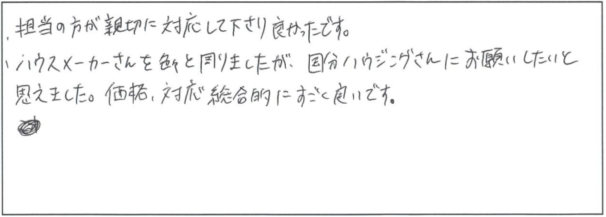 ・担当の方が親切に対応して下さり良かったです。
・ハウスメーカーさんを色々と周りましたが、国分ハウジングさんにお願いしたいと
思えました。価格、対応総合的にすごく良いです。